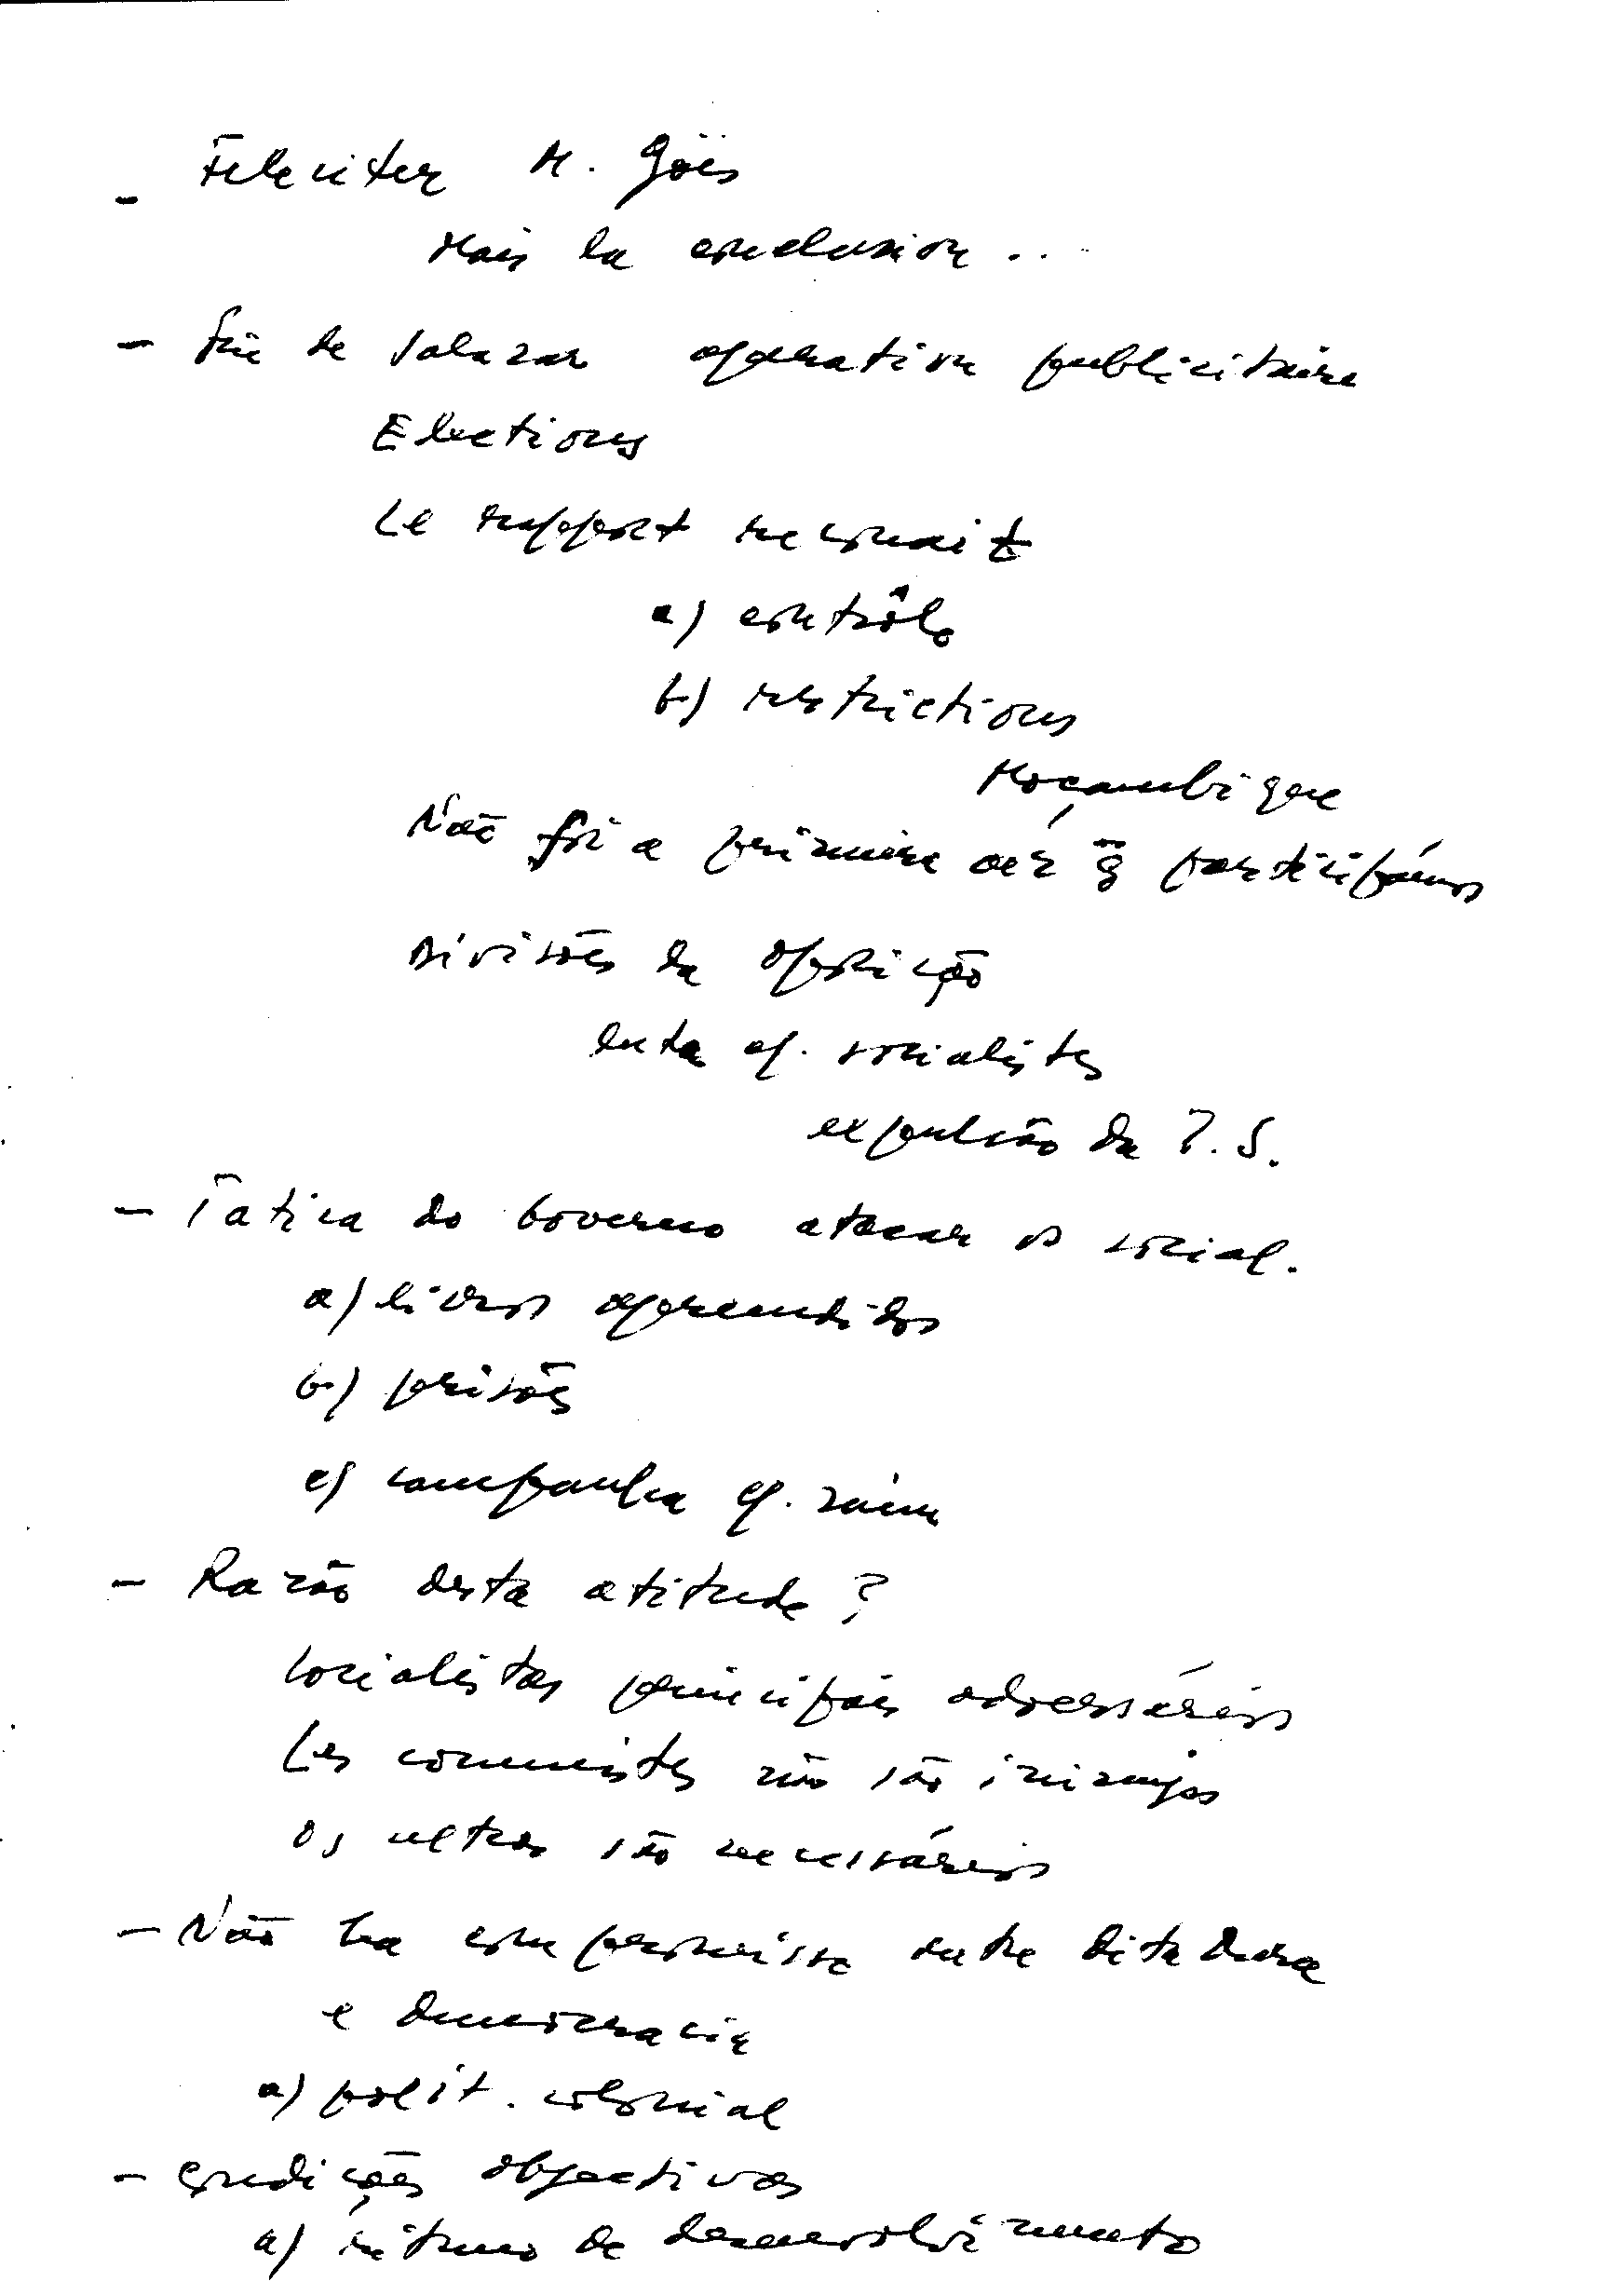 - Feleciter M. Göes
Mais la conclusion ...
- Fin de Salazar operation publicitaire
Elections
Le rapport reconait
a) contrôle
b) restrictions
Moçambique
Não foi a primeira vez q̃ participámos
Divisões da oposição
luta cf. socialistes
expulsão da I. S.
- Tatica do Governo atacar os social.
a) livros apreendidos
b) prisões
c) campanha cf.
- Razão desta atitude ?
Socialistas principais adversários
Les comunistes não são inimigos
Os ultras são necessários
- Não ha compromisso entre Ditadura
e Democracia
a) polit. colonial
- Condições objectivas
a) ritmo de desenvolvimento